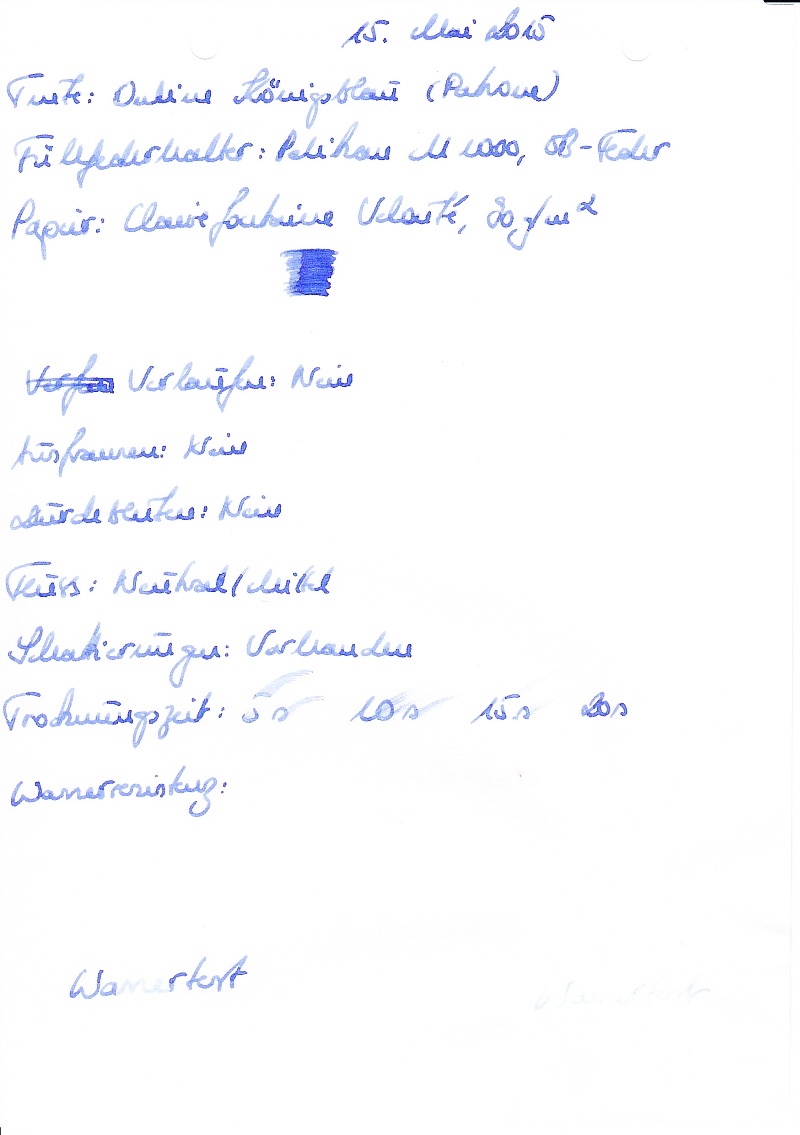 15. Mai 2015
Tinte: Online Königsblau (Patrone)
Füllfederhalter: Pelikan M 1000, OB-Feder
Papier: Clairefontaine Velouté, 90g/m²
Verlaufen: Nein
Ausfransen: Nein
Durchbluten: Nein
Fluss: Neutral/Mittel
Schattierungen: Vorhanden
Trocknungszeit: 5s 10s 15s 20s
Wasserresistenz:
Wassertest Wassertest